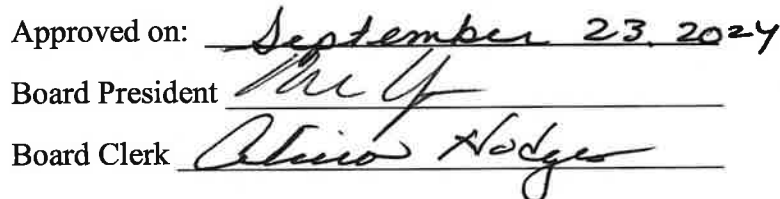 Approved on: September 23, 2024
Board President
Board Clerk Alicia Hodges